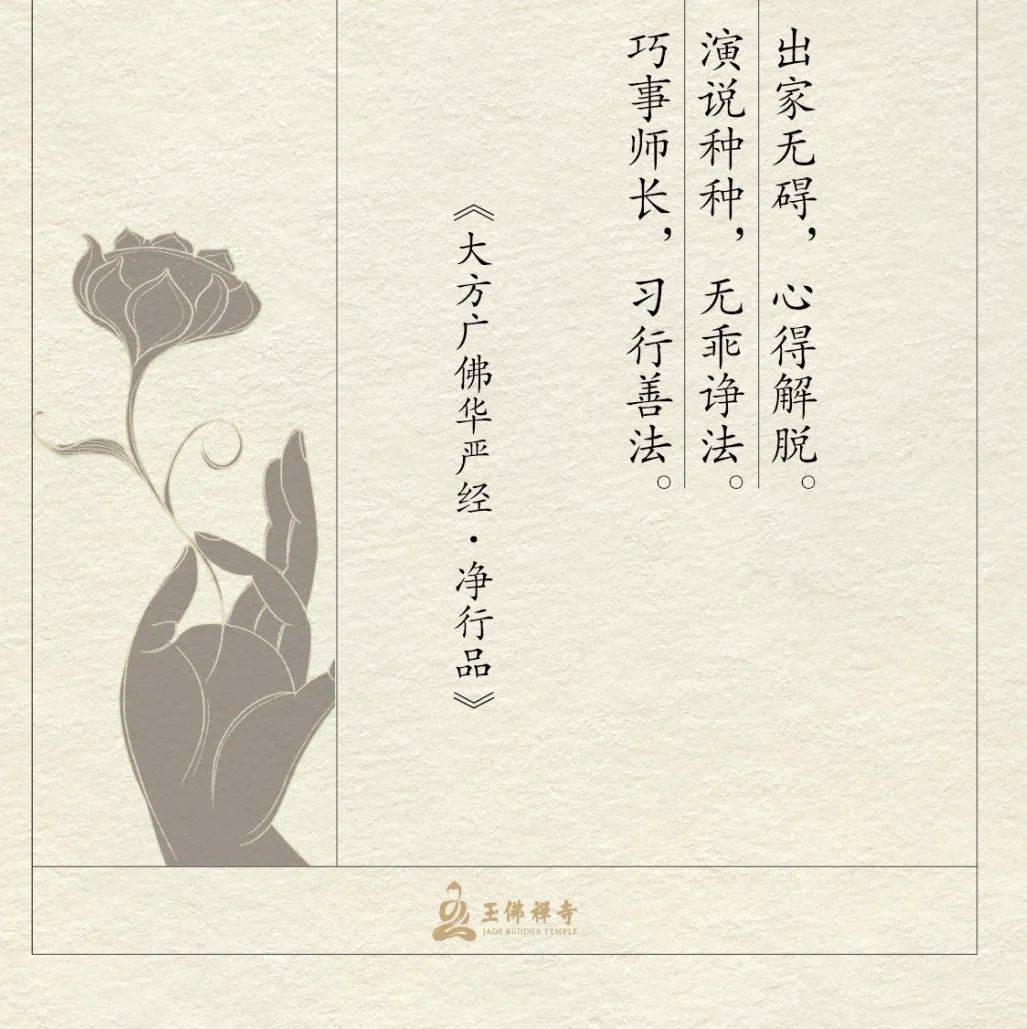 出家无碍，心得解脱。
演说种种，无乖诤法。
巧事师长，习行善法。
《大方广佛华严经·净行品》
玉佛禅寺
JADE BUDDHA TEMPLE